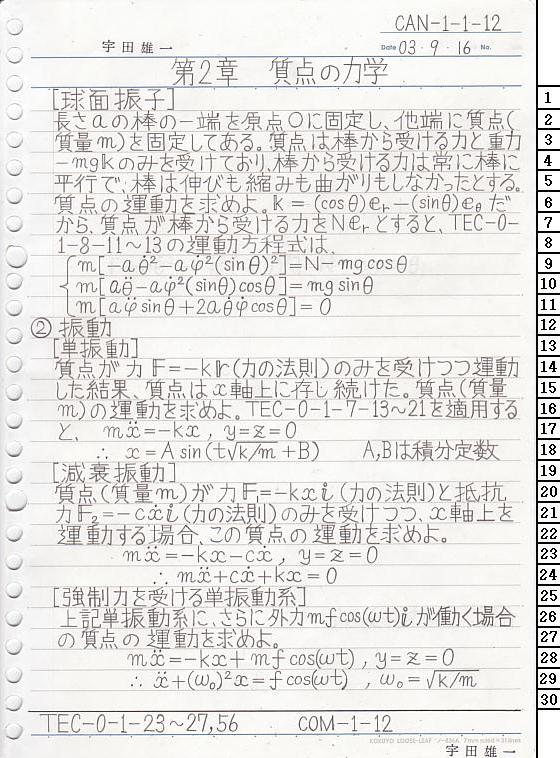 CAN-1-1-12
宇田雄一
Date 03・9・16 No.
第2章 質点の力学
[球面振子]
長さaの棒の一端を原点Oに固定し、他端に質点(
質量m)を固定してある。質点は棒から受ける力と重力
-mgkのみを受けており、棒から受ける力は常に棒に
平行で、棒は伸びも縮みも曲がりもしなかったとする。
質点の運動を求めよ。k=(cosθ)e_r-(sinθ)e_θだ
から、質点が棒から受ける力をNe_rとすると、TEC-0-
1-8-11~13の運動方程式は、
m[-aθ̇²-aφ̇²(sinθ)²]=N-mg cosθ
m[aθ̈-aφ̇²(sinθ)cosθ]=mg sinθ
m[aφ̈ sinθ+2aθ̇φ̇ cosθ]=0
② 振動
[単振動]
質点が力 F=-kr(力の法則)のみを受けつつ運動
した結果、質点はx軸上に存し続けた。質点(質量
m)の運動を求めよ。TEC-0-1-7-13~21を適用する
と、 mẍ=-kx, y=z=0
∴ x=A sin(t√k/m+B) A,Bは積分定数
[減衰振動]
質点(質量m)が力F₁=-kxi(力の法則)と抵抗
力F₂=-cẋi(力の法則)のみを受けつつ、x軸上を
運動する場合、この質点の運動を求めよ。
mẍ=-kx-cẋ, y=z=0
∴ mẍ+cẋ+kx=0
[強制力を受ける単振動系]
上記単振動系に、さらに外力mf cos(ωt)iが働く場合
の質点の運動を求めよ。
mẍ=-kx+mf cos(ωt), y=z=0
∴ ẍ+(ω₀)²x=f cos(ωt), ω₀=√k/m
TEC-0-1-23~27,56 COM-1-12
KOKUYO LOOSE-LEAF ノ-836A 7mm ruled×31lines
宇田雄一
1
2
3
4
5
6
7
8
9
10
11
12
13
14
15
16
17
18
19
20
21
22
23
24
25
26
27
28
29
30